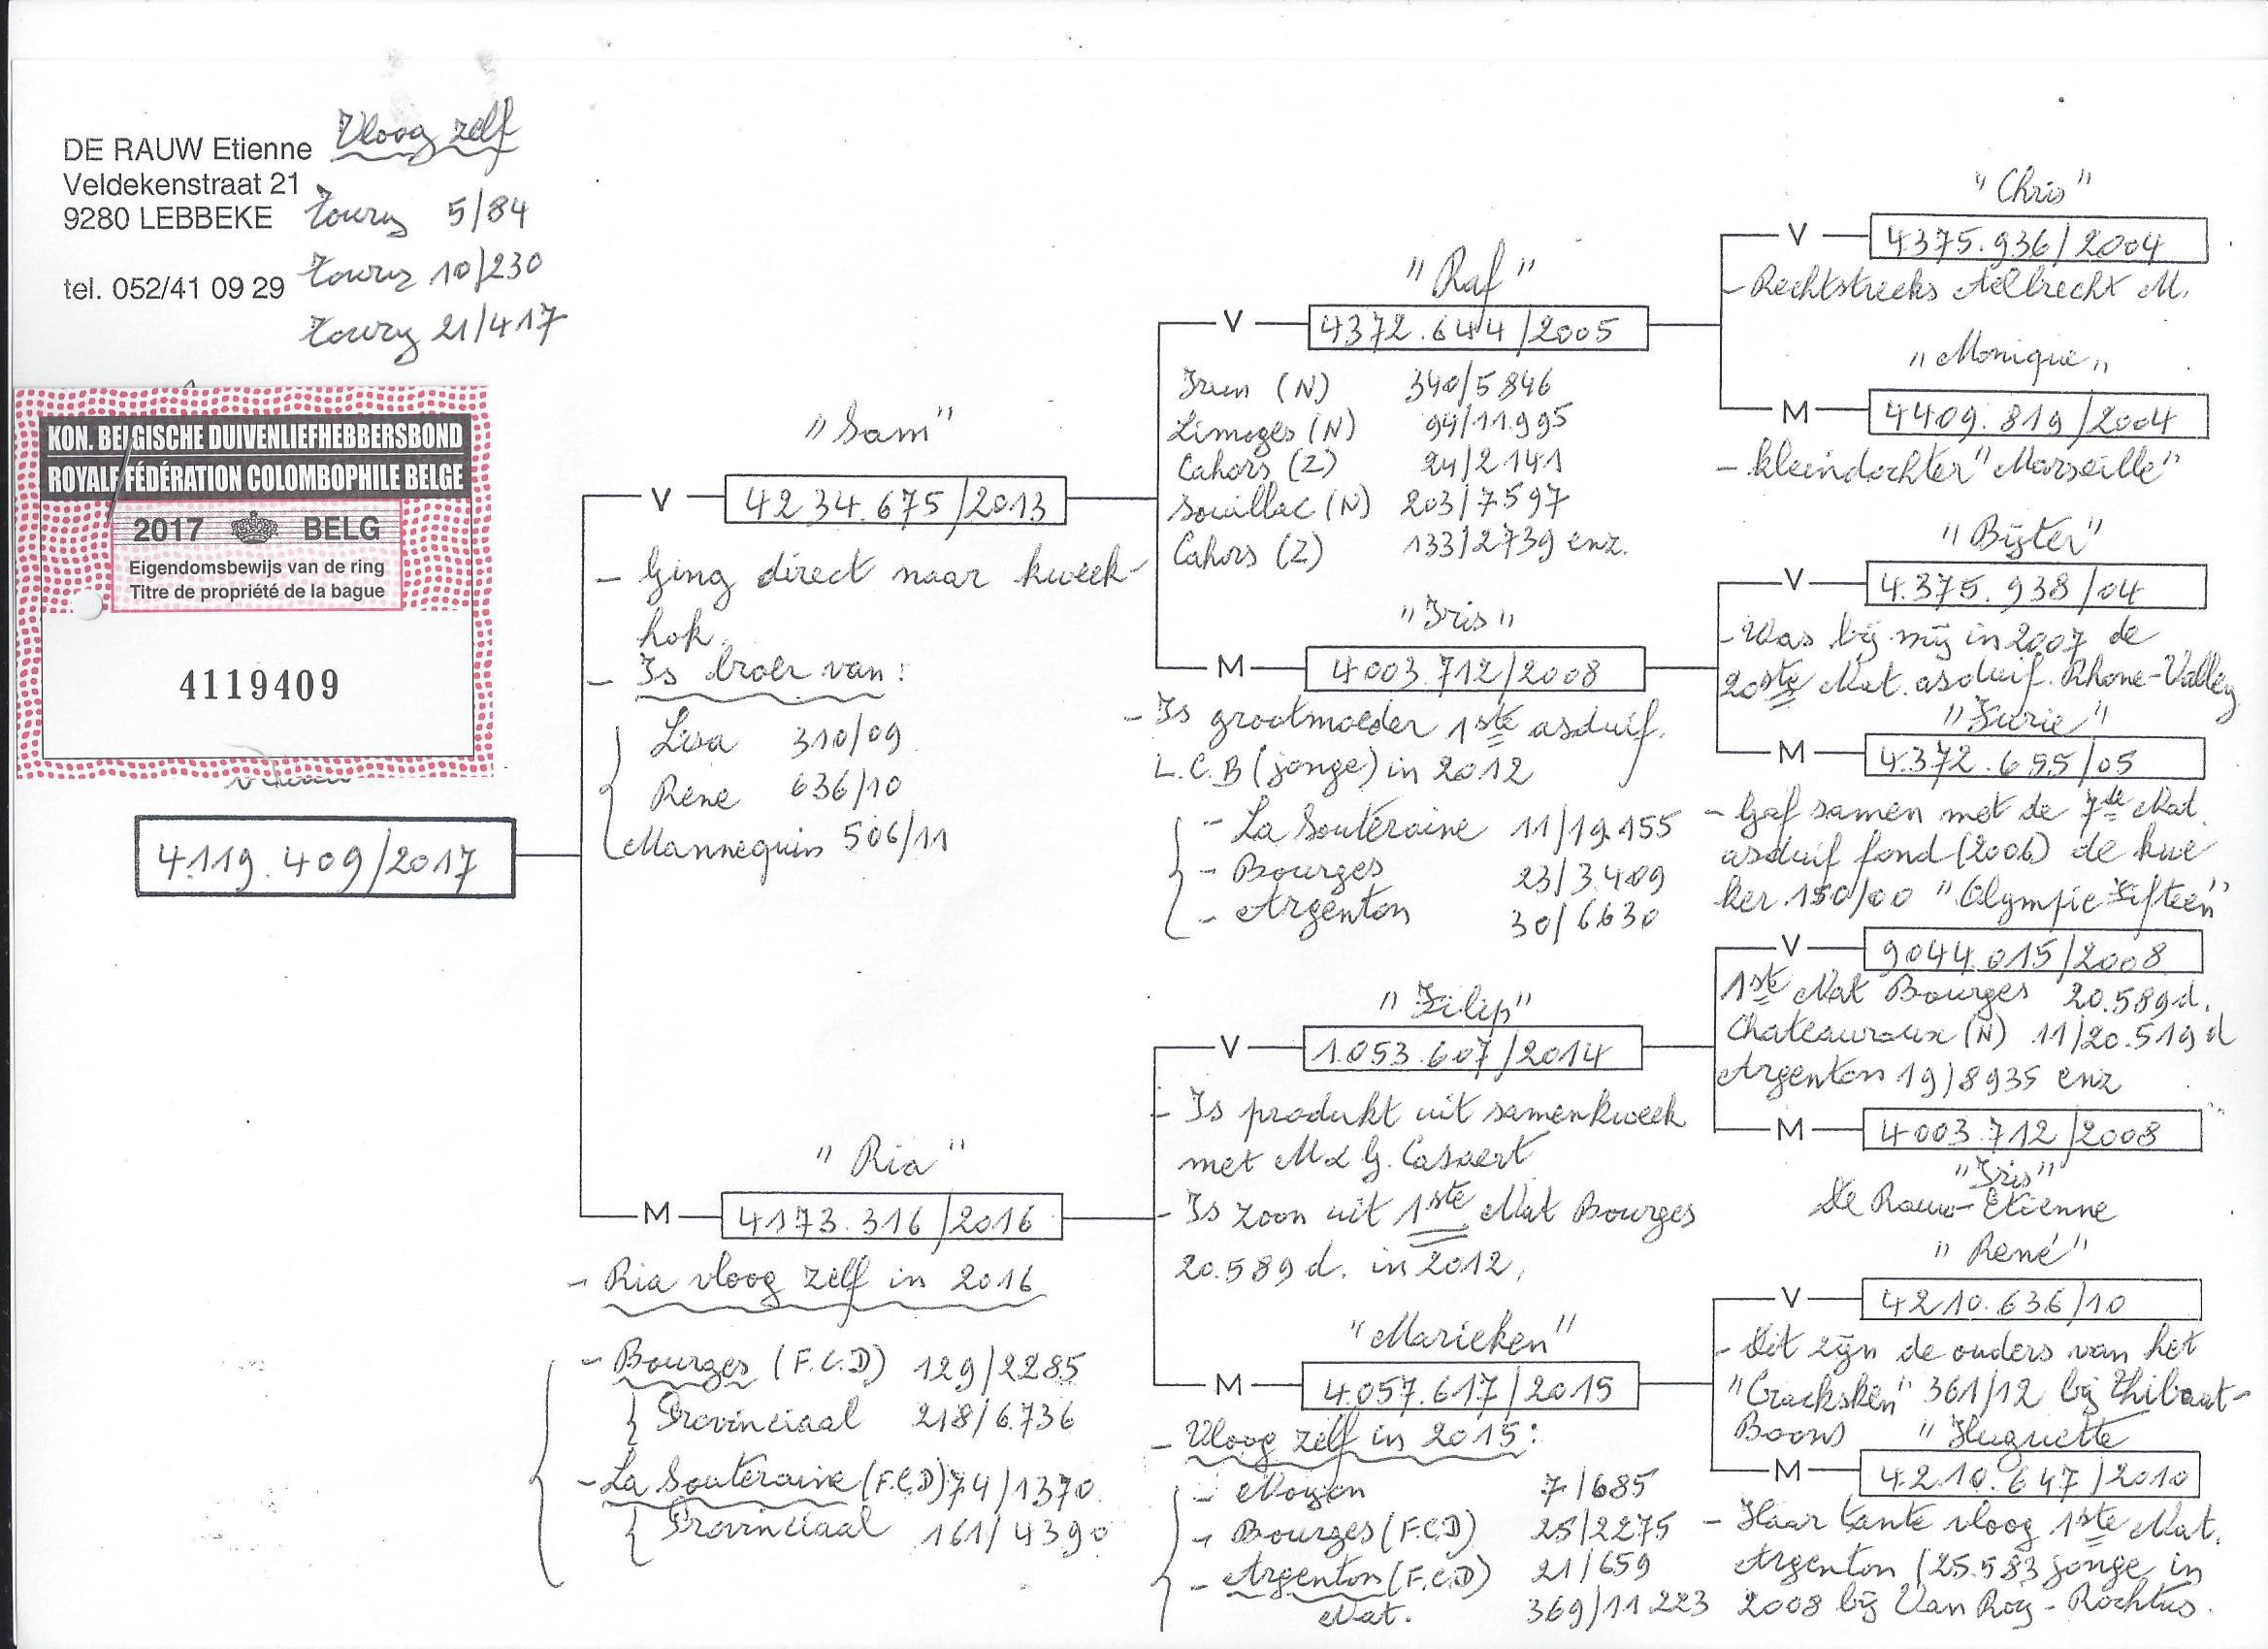 DE RAUW Etienne
Veldekenstraat 21
9280 LEBBEKE
tel. 052/41 09 29
Vloog zelf
Toury 5/84
Toury 10/230
Toury 21/417
KON. BELGISCHE DUIVENLIEFHEBBERSBOND
ROYALE FÉDÉRATION COLOMBOPHILE BELGE
2017 BELG
Eigendomsbewijs van de ring
Titre de propriété de la bague
4119409
4.119.409/2017
"Sam"
V 4234.675/2013
- Ging direct naar kweek-
hok.
- Is broer van:
Lisa 310/09
Rene 636/10
Mannequin 506/11
"Ria"
M 4173.316/2016
- Ria vloog zelf in 2016
- Bourges (F.C.D) 129/2285
Provinciaal 218/6.736
- La Souteraine (F.C.D) 74/1370
Provinciaal 161/4390
"Raf"
V 4372.644/2005
Irun (N) 340/5846
Limoges (N) 94/11.995
Cahors (Z) 24/2141
Souillac (N) 203/7597
Cahors (Z) 133/2739 enz.
"Iris"
M 4003.712/2008
- Is grootmoeder 1ste asduif.
L.C.B (jonge) in 2012
- La Souteraine 11/19.155
- Bourges 23/3.409
- Argenton 30/6.630
"Filip"
V 1.053.607/2014
- Is produkt uit samenkweek
met M & G. Casaert
- Is zoon uit 1ste Nat Bourges
20.589 d. in 2012.
"Marieken"
M 4.057.617/2015
- Vloog zelf in 2015:
- Noyon 7/685
- Bourges (F.C.D) 25/2275
- Argenton (F.C.D) 21/659
Nat. 369/11.223
"Chris"
V 4375.936/2004
- Rechtstreeks Aelbrecht M.
"Monique"
M 4409.819/2004
- kleindochter "Marseille"
"Bijter"
V 4.375.938/04
- Was bij mij in 2007 de
20ste Nat. asduif. Rhone-Valley
"Furie"
M 4.372.655/05
- Gaf samen met de 7de Nat.
asduif fond (2006) de kwe
ker 150/00 "Olympic Fifteen"
V 9044.015/2008
1ste Nat Bourges 20.589d.
Chateauroux (N) 11/20.519 d
Argenton 19/8935 enz
M 4003.712/2008
"Iris"
De Rauw-Etienne
"René"
V 4210.636/10
- Dit zijn de ouders van het
"Cracksken" 361/12 bij Thibaut-
Boons "Huguette
M 4.210.647/2010
- Haar tante vloog 1ste Nat.
Argenton (25.583 jonge in
2008 bij Van Roy-Rochtus.